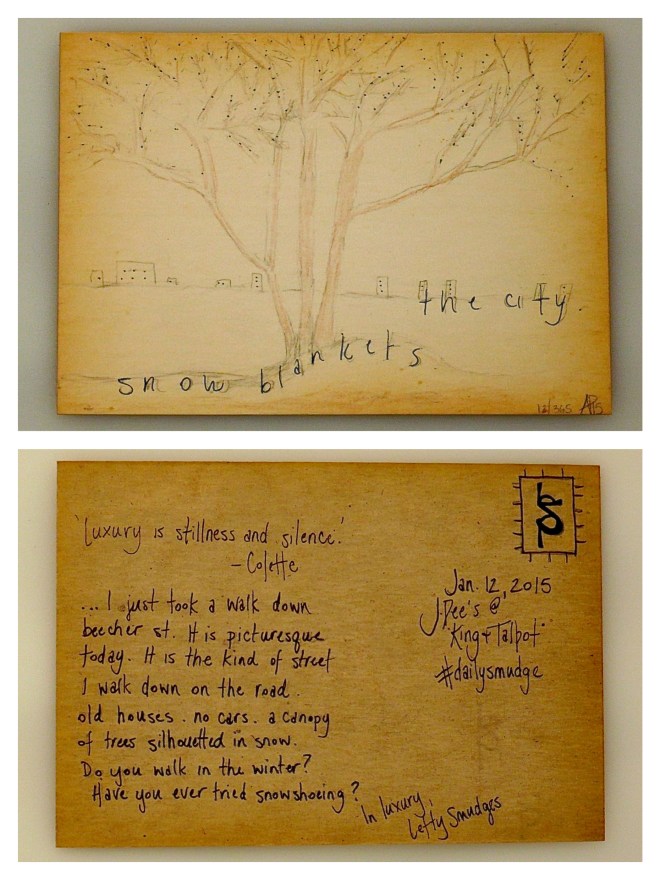 the city.
snow blankets
12/365
'Luxury is stillness and silence.'
- Colette
... I just took a walk down
beecher st. It is picturesque
today. It is the kind of street
I walk down on the road.
old houses. no cars. a canopy
of trees silhouetted in snow.
Do you walk in the winter?
Have you ever tried snowshoeing?
In luxury,
Lefty Smudges
Jan. 12, 2015
J.Dee's @
"King & Talbot"
#dailysmudge